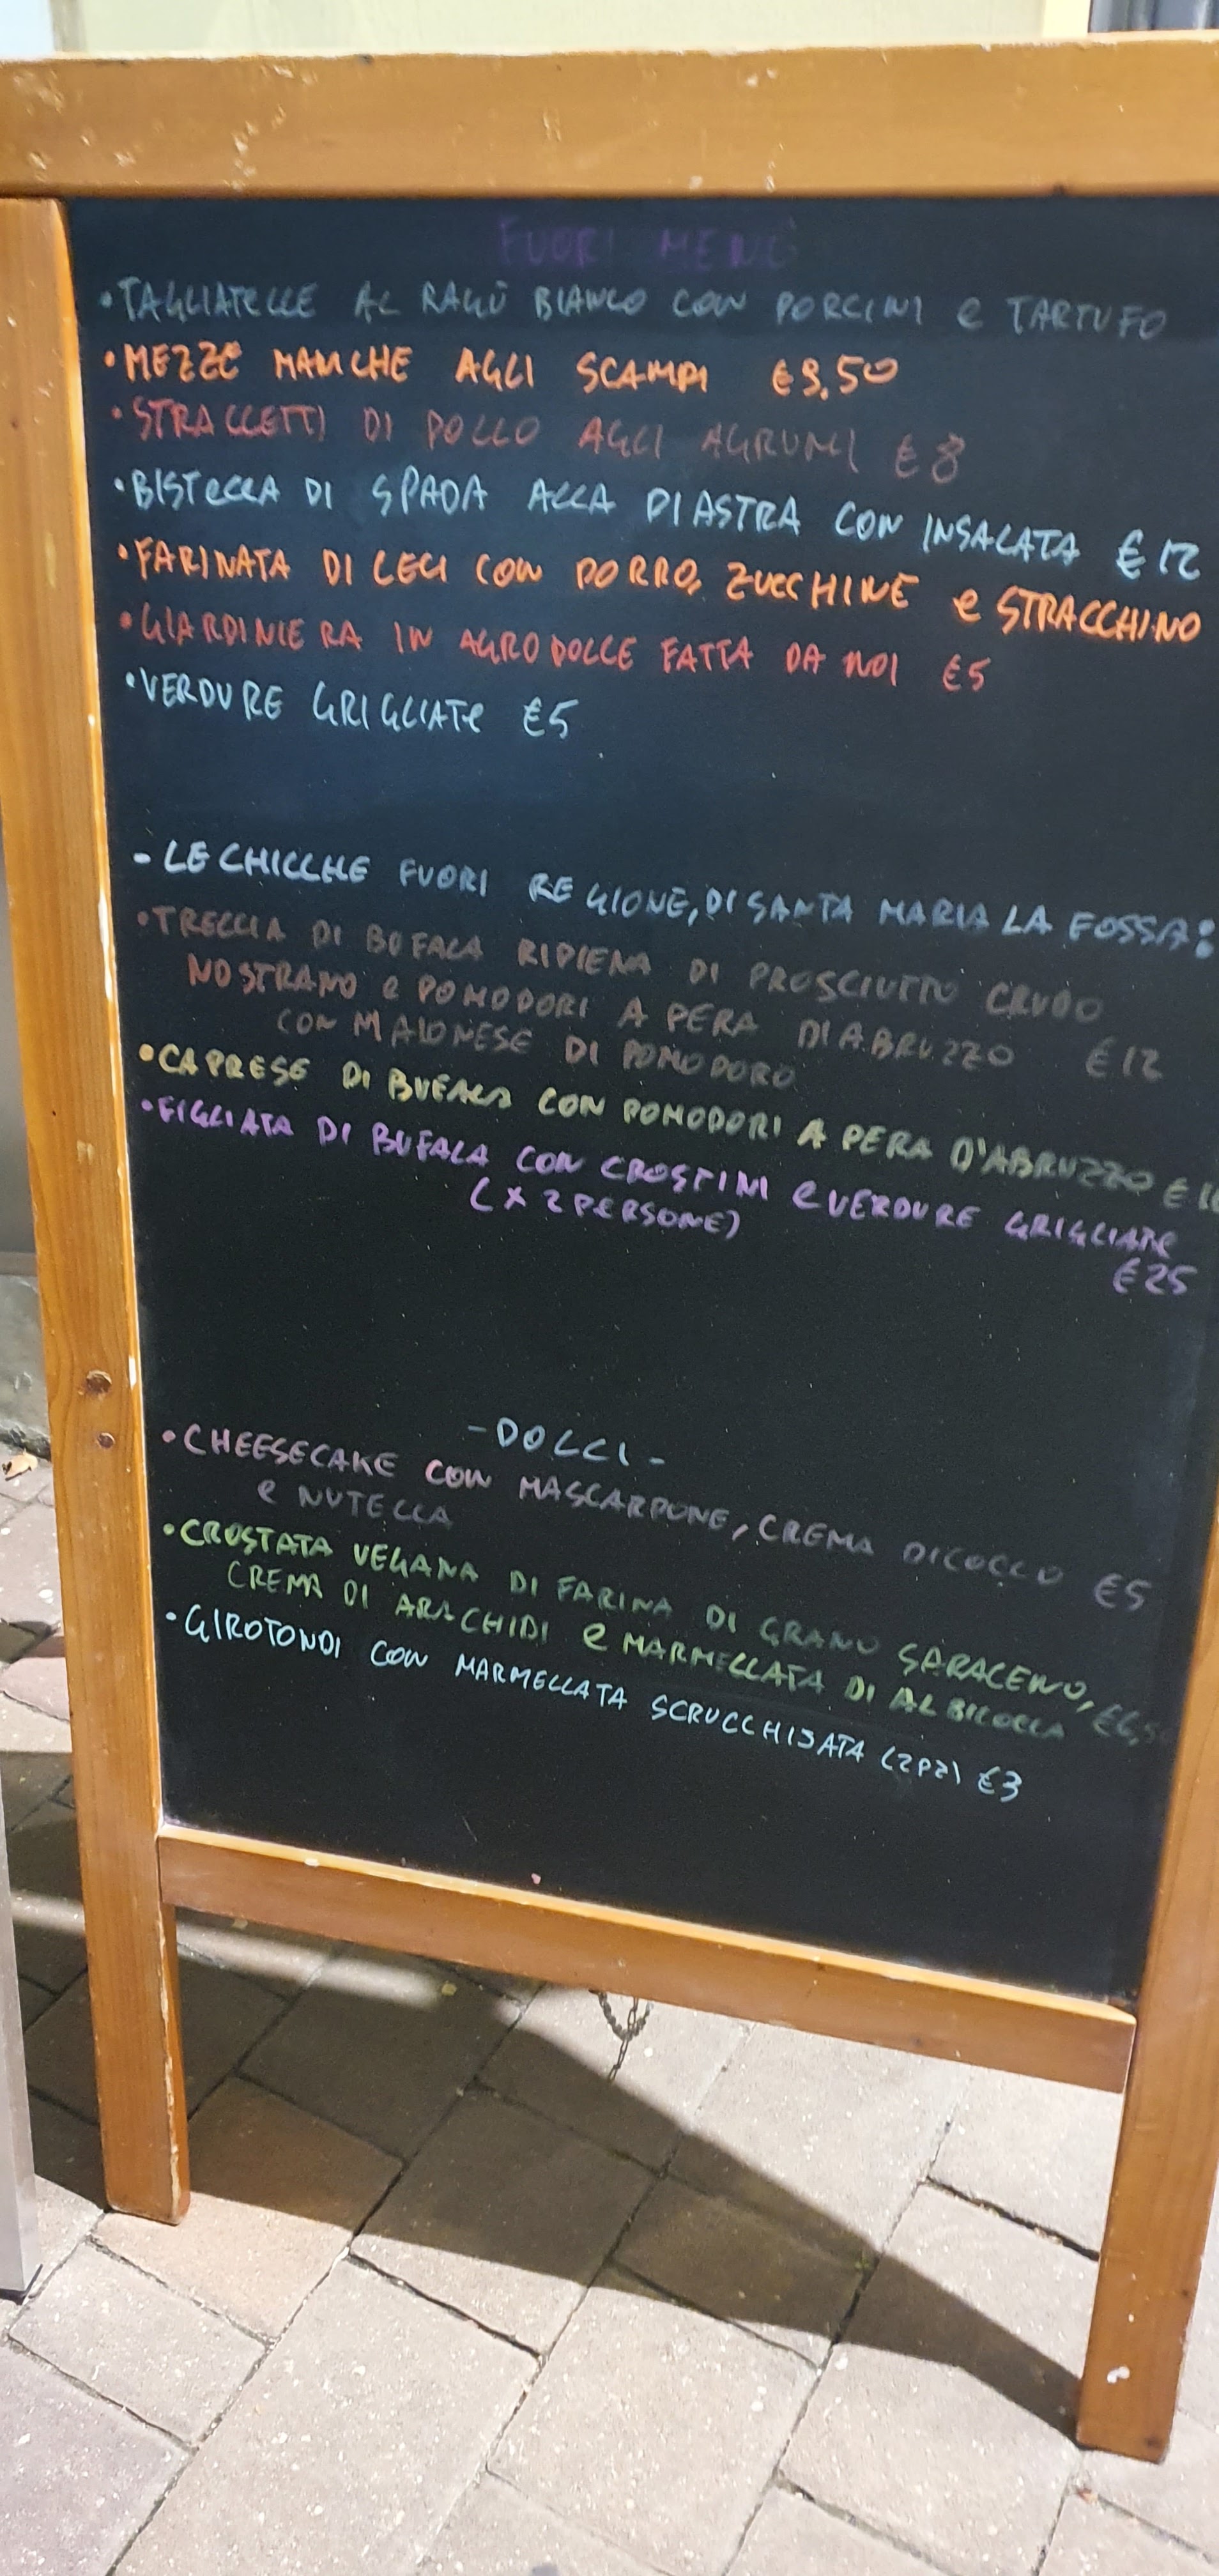 FUORI MENÙ
•TAGLIATELLE AL RAGÙ BIANCO CON PORCINI e TARTUFO
•MEZZE MANICHE AGLI SCAMPI €9,50
•STRACCETTI DI POLLO AGLI AGRUMI €8
•BISTECCA DI SPADA ALLA PIASTRA CON INSALATA €12
•FARINATA DI CECI CON PORRO, ZUCCHINE e STRACCHINO
•GIARDINIERA IN AGRODOLCE FATTA DA NOI €5
•VERDURE GRIGLIATE €5
- LE CHICCHE FUORI REGIONE, DI SANTA MARIA LA FOSSA:
•TRECCIA DI BUFALA RIPIENA DI PROSCIUTTO CRUDO
NOSTRANO e POMODORI A PERA D'ABRUZZO €12
CON MAIONESE DI POMODORO
•CAPRESE DI BUFALA CON POMODORI A PERA D'ABRUZZO €
•FIGLIATA DI BUFALA CON CROSTINI e VERDURE GRIGLIATE
(X 2 PERSONE)
€25
-DOLCI-
•CHEESECAKE CON MASCARPONE, CREMA DI COCCO €5
e NUTELLA
•CROSTATA VEGANA DI FARINA DI GRANO SARACENO,
CREMA DI ARACHIDI e MARMELLATA DI ALBICOCCA
•GIROTONDI CON MARMELLATA SCRUCCHIJATA (2PZ) €3